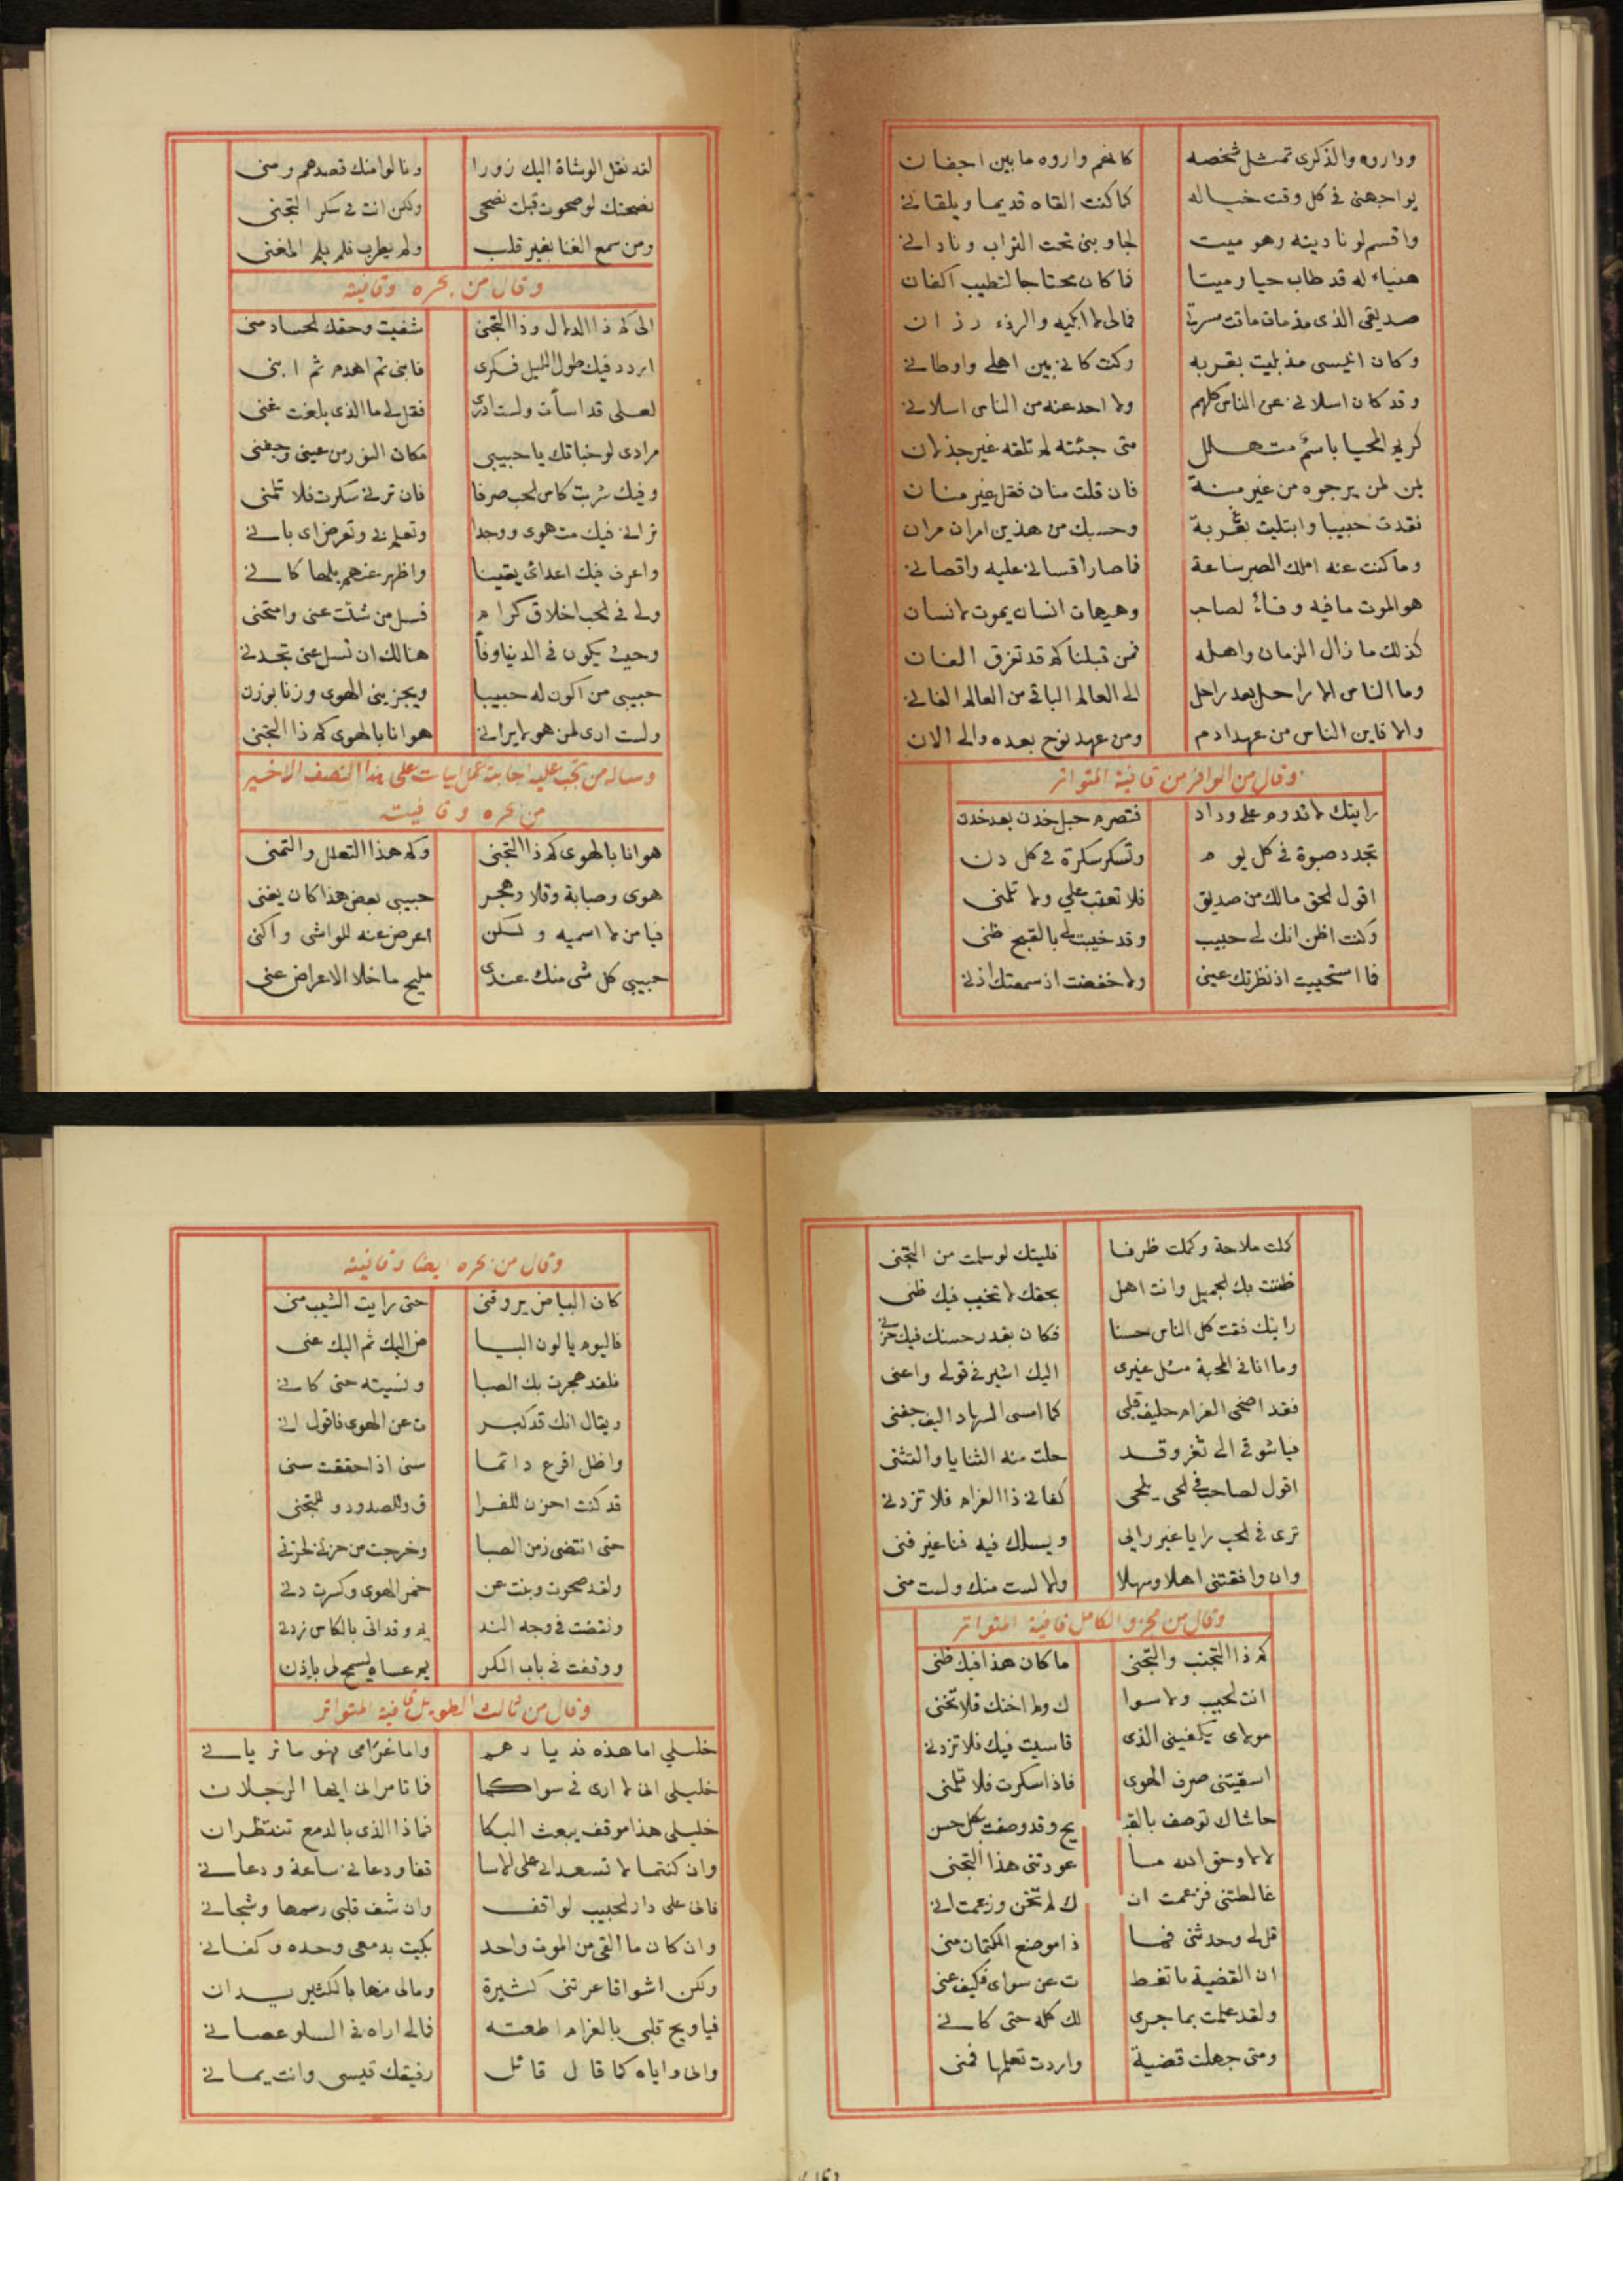 وداروه والذكرى تمثل شخصه كانهم واروه ما بين اجفان
يواجهنى فى كل وقت خياله كما كنت القاه قديما ويلقانى
واقسم لو ناديته وهو ميت لجاوبنى تحت التراب ونادانى
هنياء له قد طاب حيا وميتا فما كان محتاجا لتطييب اكفان
صديقى الذى مذ مات ماتت مسرتى فمالى لا ابكيه والرزء رزان
وكان انيسى مذ بليت بغربه وكنت كانى بين اهلى واوطانى
وقد كان اسلانى عن الناس كلهم ولا احد عنه من الناس اسلانى
كريم المحيا باسم متهلل متى جئته لم تلقه غير جذلان
يمن لمن يرجوه من غير منة فان قلت منان فقل غير منان
فقدت حبيبا وابتليت بغربة وحسبك من هذين امران مران
وما كنت عنه املك الصبر ساعة فاصار اقسانى عليه واقصانى
هو الموت ما فيه وفاء لصاحب وهيهات انسان يموت لانسان
كذلك ما زال الزمان واهله فمن قبلنا كم قد تفرق الفان
وما الناس الا راحل بعد راحل الى العالم الباقى من العالم الفانى
والا فاين الناس من عهد ادم ومن عهد نوح بعده والى الان
وقال من الوافر من قافية المتواتر
رايتك لا تدوم على وداد فتصرم حبل خدن بعد خدن
تجدد صبوة فى كل يوم وتسكر سكرة فى كل دن
اقول لحق مالك من صديق فلا تعتب على ولا تلمنى
وكنت اظن انك لى حبيب وقد خيبت لى بالقبح ظنى
فما استحييت اذ نظرتك عينى ولا خفضت اذ سمعتك اذنى
لقد نقل الوشاة اليك زورا ونالوا منك قصدهم ومنى
نصحتك لو صحوت قبلت نصحى ولكن انت فى سكر التجنى
ومن سمع الغنا بغير قلب ولم يطرب فلم يلم المغنى
وقال من بحره وقافيته
الى كم ذا الدلال وذا التجنى شفيت وحقك الحساد منى
اردد فيك طول الليل فكرى فابنى ثم اهدم ثم ابنى
لعلى قد اسأت ولست ادرى فقل لى ما الذى بلغت عنى
مرادى لو خباتك يا حبيبى مكان النور من عينى وجفنى
وفيك شربت كاس الحب صرفا فان ترنى سكرت فلا تلمنى
ترانى فيك مت هوى ووجدا وتعلم بى وتعرض اى بانى
واعرف فيك اعداى يقينا واظهر عنهم بلها كانى
ولى فى الحب اخلاق كرام فسل من شئت عنى وامتحنى
وحيث يكون فى الدنيا وفا هنالك ان تسل عنى تجدنى
حبيبى من اكون له حبيبا ويجزينى الهوى وزنا بوزن
ولست ارى لمن هو لا يرانى هوانا بالهوى كم ذا التجنى
وساله من تجب عليه اجابته عمل ابيات على هذا النصف الاخير
من بحره وقافيته
هوانا بالهوى كم ذا التجنى وكم هذا التعلل والتمنى
هوى وصبابة وقلا وهجر حبيبى بعض هذا كان يغنى
فيا من لا اسميه ولكن اعرض عنه للواشى واكنى
حبيبى كل شى منك عندى مليح ما خلا الاعراض عنى
كملت ملاحة وكملت ظرفا فليتك لو سلمت من التجنى
ظننت بك الجميل وانت اهل بحقك لا تخيب فيك ظنى
رايتك فقت كل الناس حسنا فكان بقدر حسنك فيك حزنى
وما انا فى المحبة مثل غيرى اليك اشير فى قولى واعنى
فقد اضحى الغرام حليف قلبى كما امسى السهاد اليف جفنى
فيا شوقى الى ثغر وقد حلت منه الثنايا والتثنى
اقول لصاحب فى الحب يلحى كفانى ذا الغرام فلا تزدنى
ترى فى الحب رايا غير رايى ويسلك فيه فنا غير فنى
وان وافقتنى اهلا وسهلا والا لست منك ولست منى
وقال من مجزو الكامل قافية المتواتر
كم ذا التجنب والتجنى ما كان هذا فيك ظنى
انت الحبيب ولا سوا ك ولم اخنك فلا تخنى
مولاى يكفينى الذى قاسيت فيك فلا تزدنى
اسقيتنى صرف الهوى فاذا سكرت فلا تلمنى
حاشاك توصف بالقبـ يح وقد وصفت بكل حسن
لا لا وحق الله ما عودتنى هذا التجنى
غالطتنى فزعمت ان ك لم تخن وزعمت انى
قل لى وحدثنى فما ذا موضع الكتمان منى
ان القضية ما تغط ت عن سواى فكيف عنى
ولقد علمت بما جرى لك كله حتى كانى
ومتى جهلت قضية واردت تعلمها فمنى
وقال من بحره ايضا وقافيته
كان البياض يروقنى حتى رايت الشيب منى
فاليوم يا لون البيا ض اليك ثم اليك عنى
فلقد هجرت بك الصبا ونسيته حتى كانى
ويقال انك قد كبر ت عن الهوى فاقول انى
واظل اقرع دائما سنى اذا حققت سنى
قد كنت احزن للفرا ق وللصدود وللتجنى
حتى انقضى زمن الصبا وخرجت من حزن لحزنى
ولقد صحوت وبنت عن خمر الهوى وكسرت دنى
ونفضت فى وجه الند يم وقد اتى بالكاس ردنى
ووقفت فى باب الكر يم عساه يسمح لى باذن
وقال من ثالث الطويل قافية المتواتر
خليلى اما هذه فديارهم واما غرامى فهو ما تريانى
خليلى انى لا ارى فى سواكما فما تامرانى ايها الرجلان
خليلى هذا موقف يبعث البكا فماذا الذى بالدمع تنتظران
وان كنتما لا تسعدانى على الاسا قفا ودعانى ساعة ودعانى
فانى على دار الحبيب لواقف وان شف قلبى رسمها وشجانى
وان كان ما القى من الموت واحد بكيت بدمعى وحده وكفانى
ولكن اشواقا عرتنى كثيرة ومالى منها بالكثير يدان
فيا ويح قلبى بالغرام اطعته فما لى اراه فى السلو عصانى
وانى واياه كما قال قائل رفيقك قيسى وانت يمانى